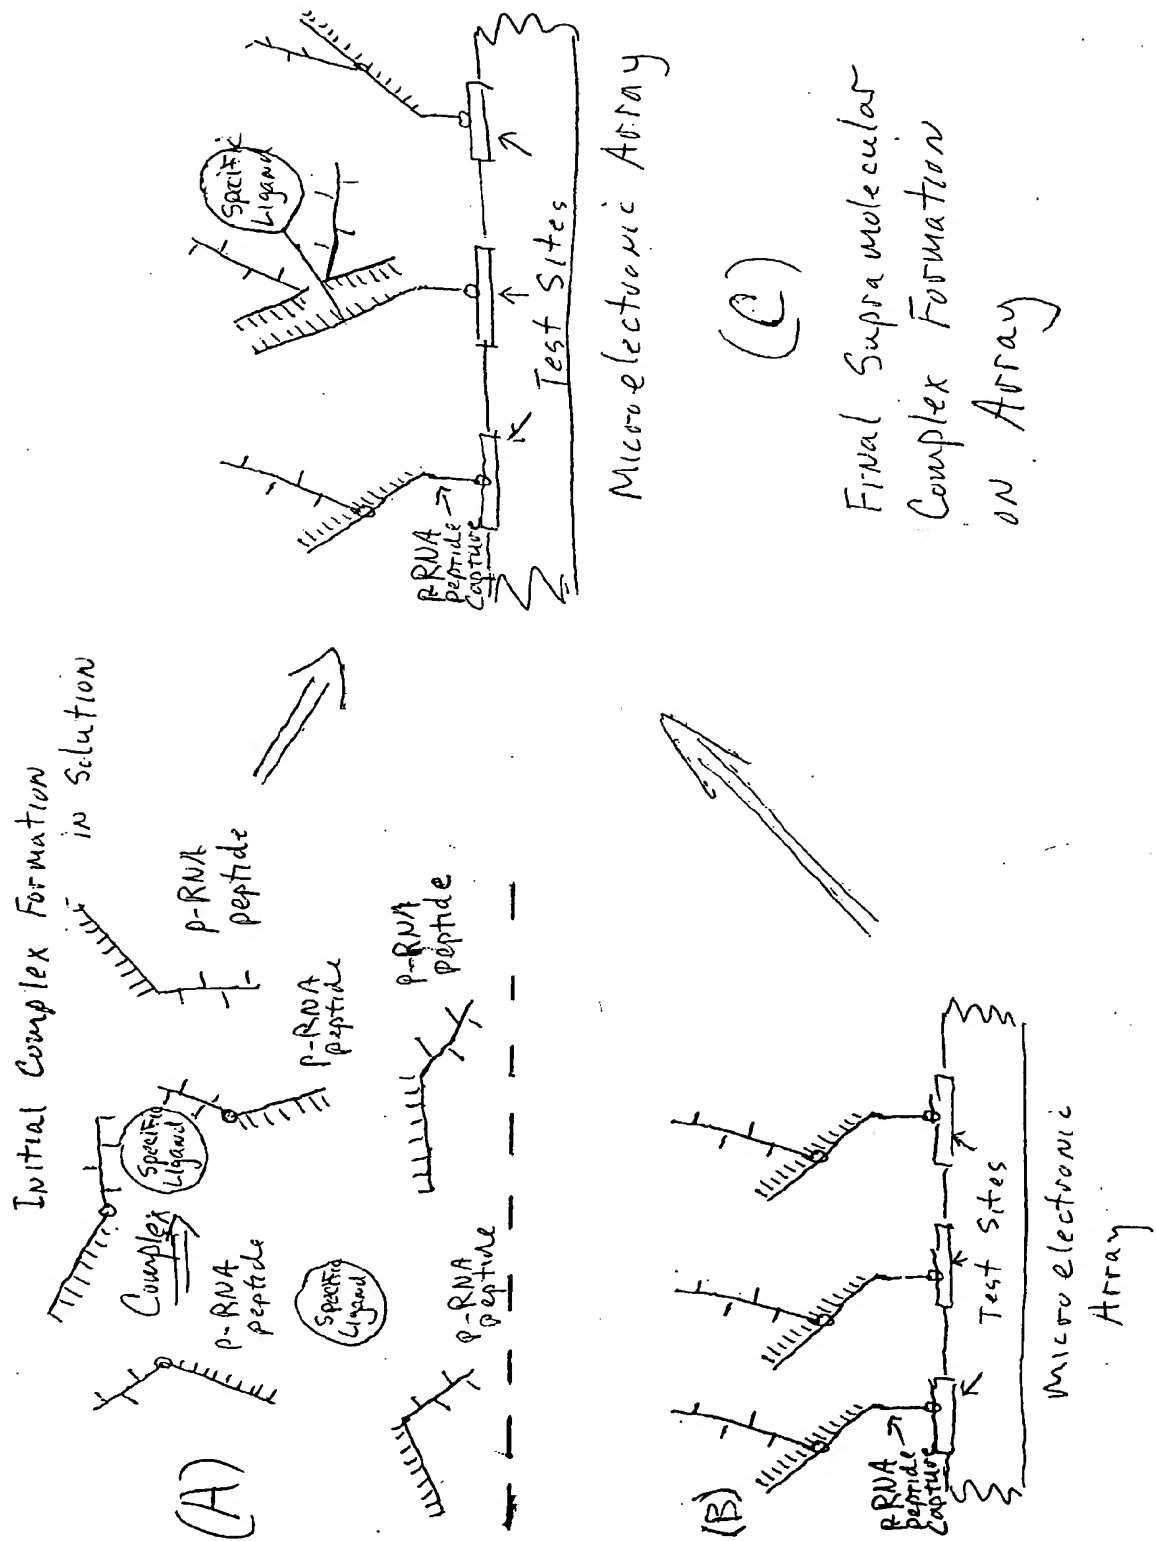 (A)
Initial Complex Formation
in Solution
Complex
Specific
Ligand
p-RNA
peptide
p-RNA
peptide
p-RNA
peptide
Specific
Ligand
p-RNA
peptide
p-RNA
peptide
(B)
p-RNA
peptide
Capture
Test Sites
Microelectronic
Array
Specific
Ligand
p-RNA
peptide
Capture
Test Sites
Microelectronic Array
(C)
Final Supramolecular
Complex Formation
on Array